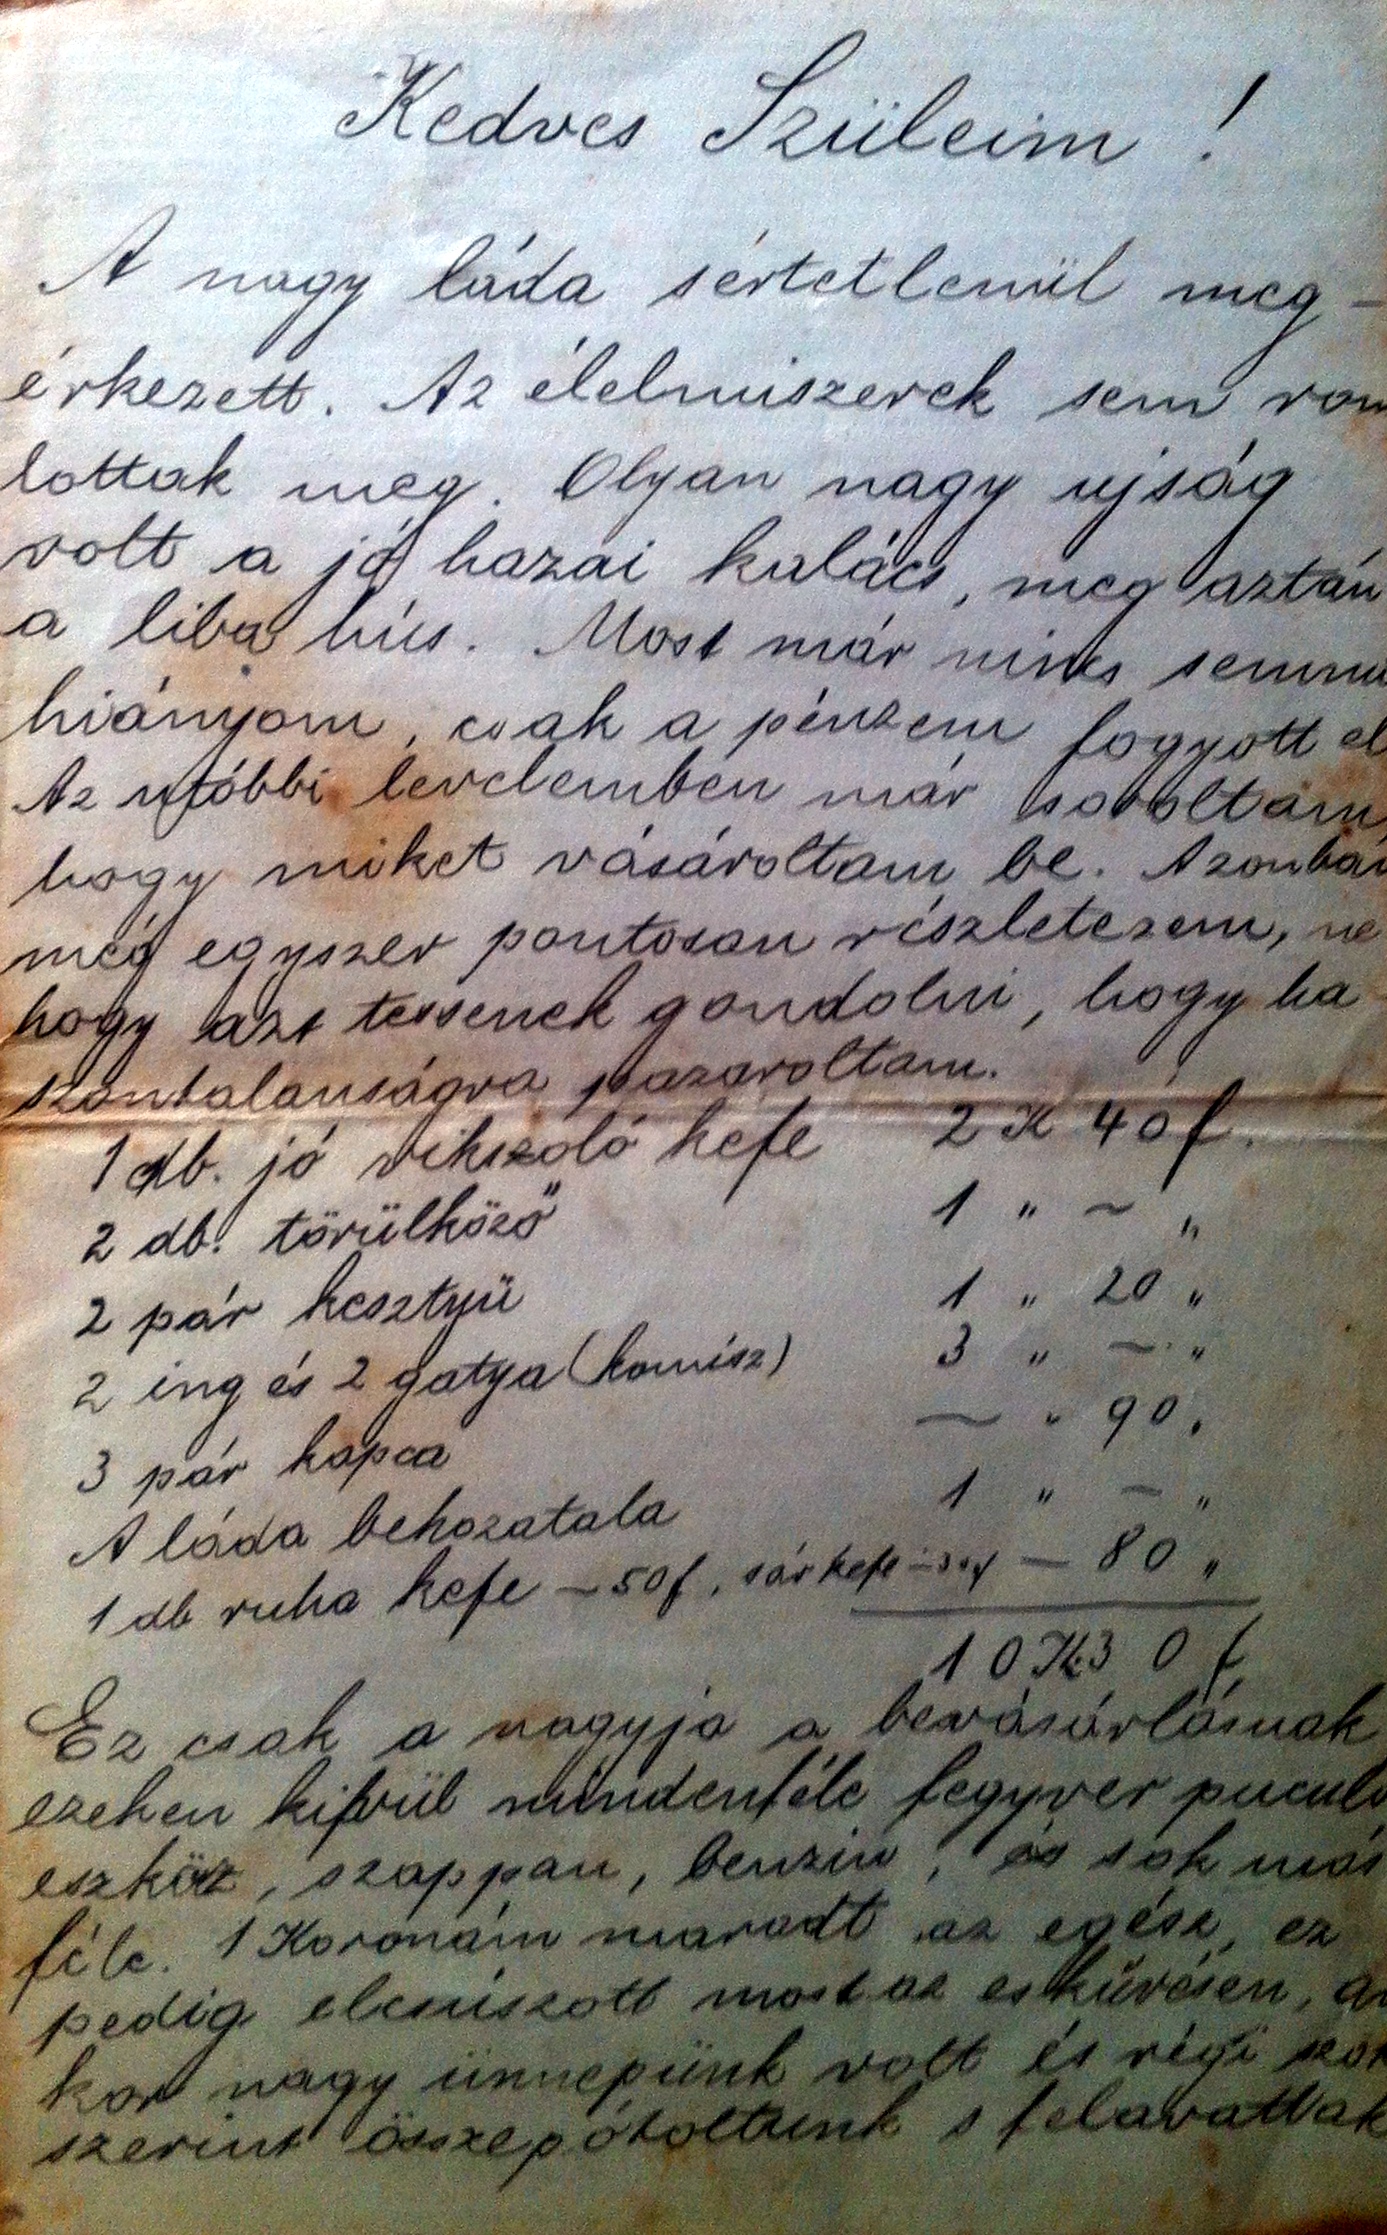 Kedves Szüleim !
A nagy láda sértetlenül meg-
érkezett. Az élelmiszerek sem rom
lottak meg. Olyan nagy ujság
volt a jó hazai kalács, meg aztán
a liba hús. Most már nincs semmi
hiányom, csak a pénzem fogyott el
Az utóbbi levelemben már soroltam,
hogy miket vásároltam be. Azonban
még egyszer pontosan részletezem, ne
hogy azt tessenek gondolni, hogy ha
szontalanságra pazaroltam.
1 db. jó vikszoló kefe 2 K 40 f.
2 db. törülköző 1 " ~ "
2 pár kesztyü 1 " 20 "
2 ing és 2 gatya (komisz) 3 " — "
3 pár kapca — " 90 "
A láda behozatala 1 " — "
1 db ruha kefe — 50 f, sárkefe — 30 f — 80 "
10 K 30 f
Ez csak a nagyja a bevásárlásnak
ezeken kifvül mindenféle fegyver puculó
eszköz, szappan, benzin, és sok más
féle. 1 Koronám maradt az egész, ez
pedig elcsúszott most az esküvésen, a
kor nagy ünnepünk volt és régi szok
szerint összepótoltunk s felavattak